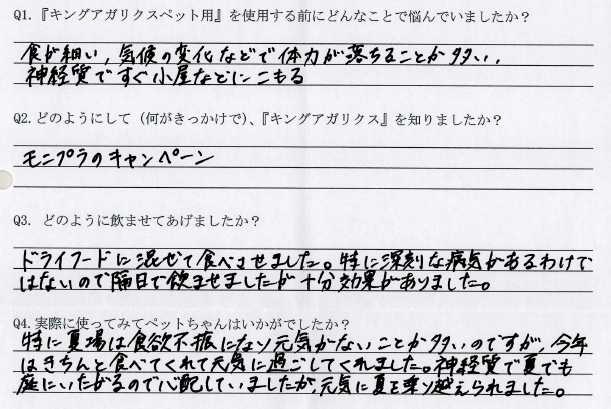 Q1.『キングアガリクスペット用』を使用する前にどんなことで悩んでいましたか？
食が細い，気候の変化などで体力が落ちることが多い．
神経質ですぐ小屋などにこもる
Q2.どのようにして（何がきっかけで）、『キングアガリクス』を知りましたか？
モニプラのキャンペーン
Q3. どのように飲ませてあげましたか？
ドライフードに混ぜて食べさせました。特に深刻な病気があるわけで
はないので隔日で飲ませましたが十分効果がありました。
Q4.実際に使ってみてペットちゃんはいかがでしたか？
特に夏場は食欲不振になり元気がないことが多いのですが，今年
はきちんと食べてくれて元気に過ごしてくれました。神経質で夏でも
庭にいたがるので心配していましたが，元気に夏を乗り越えられました。